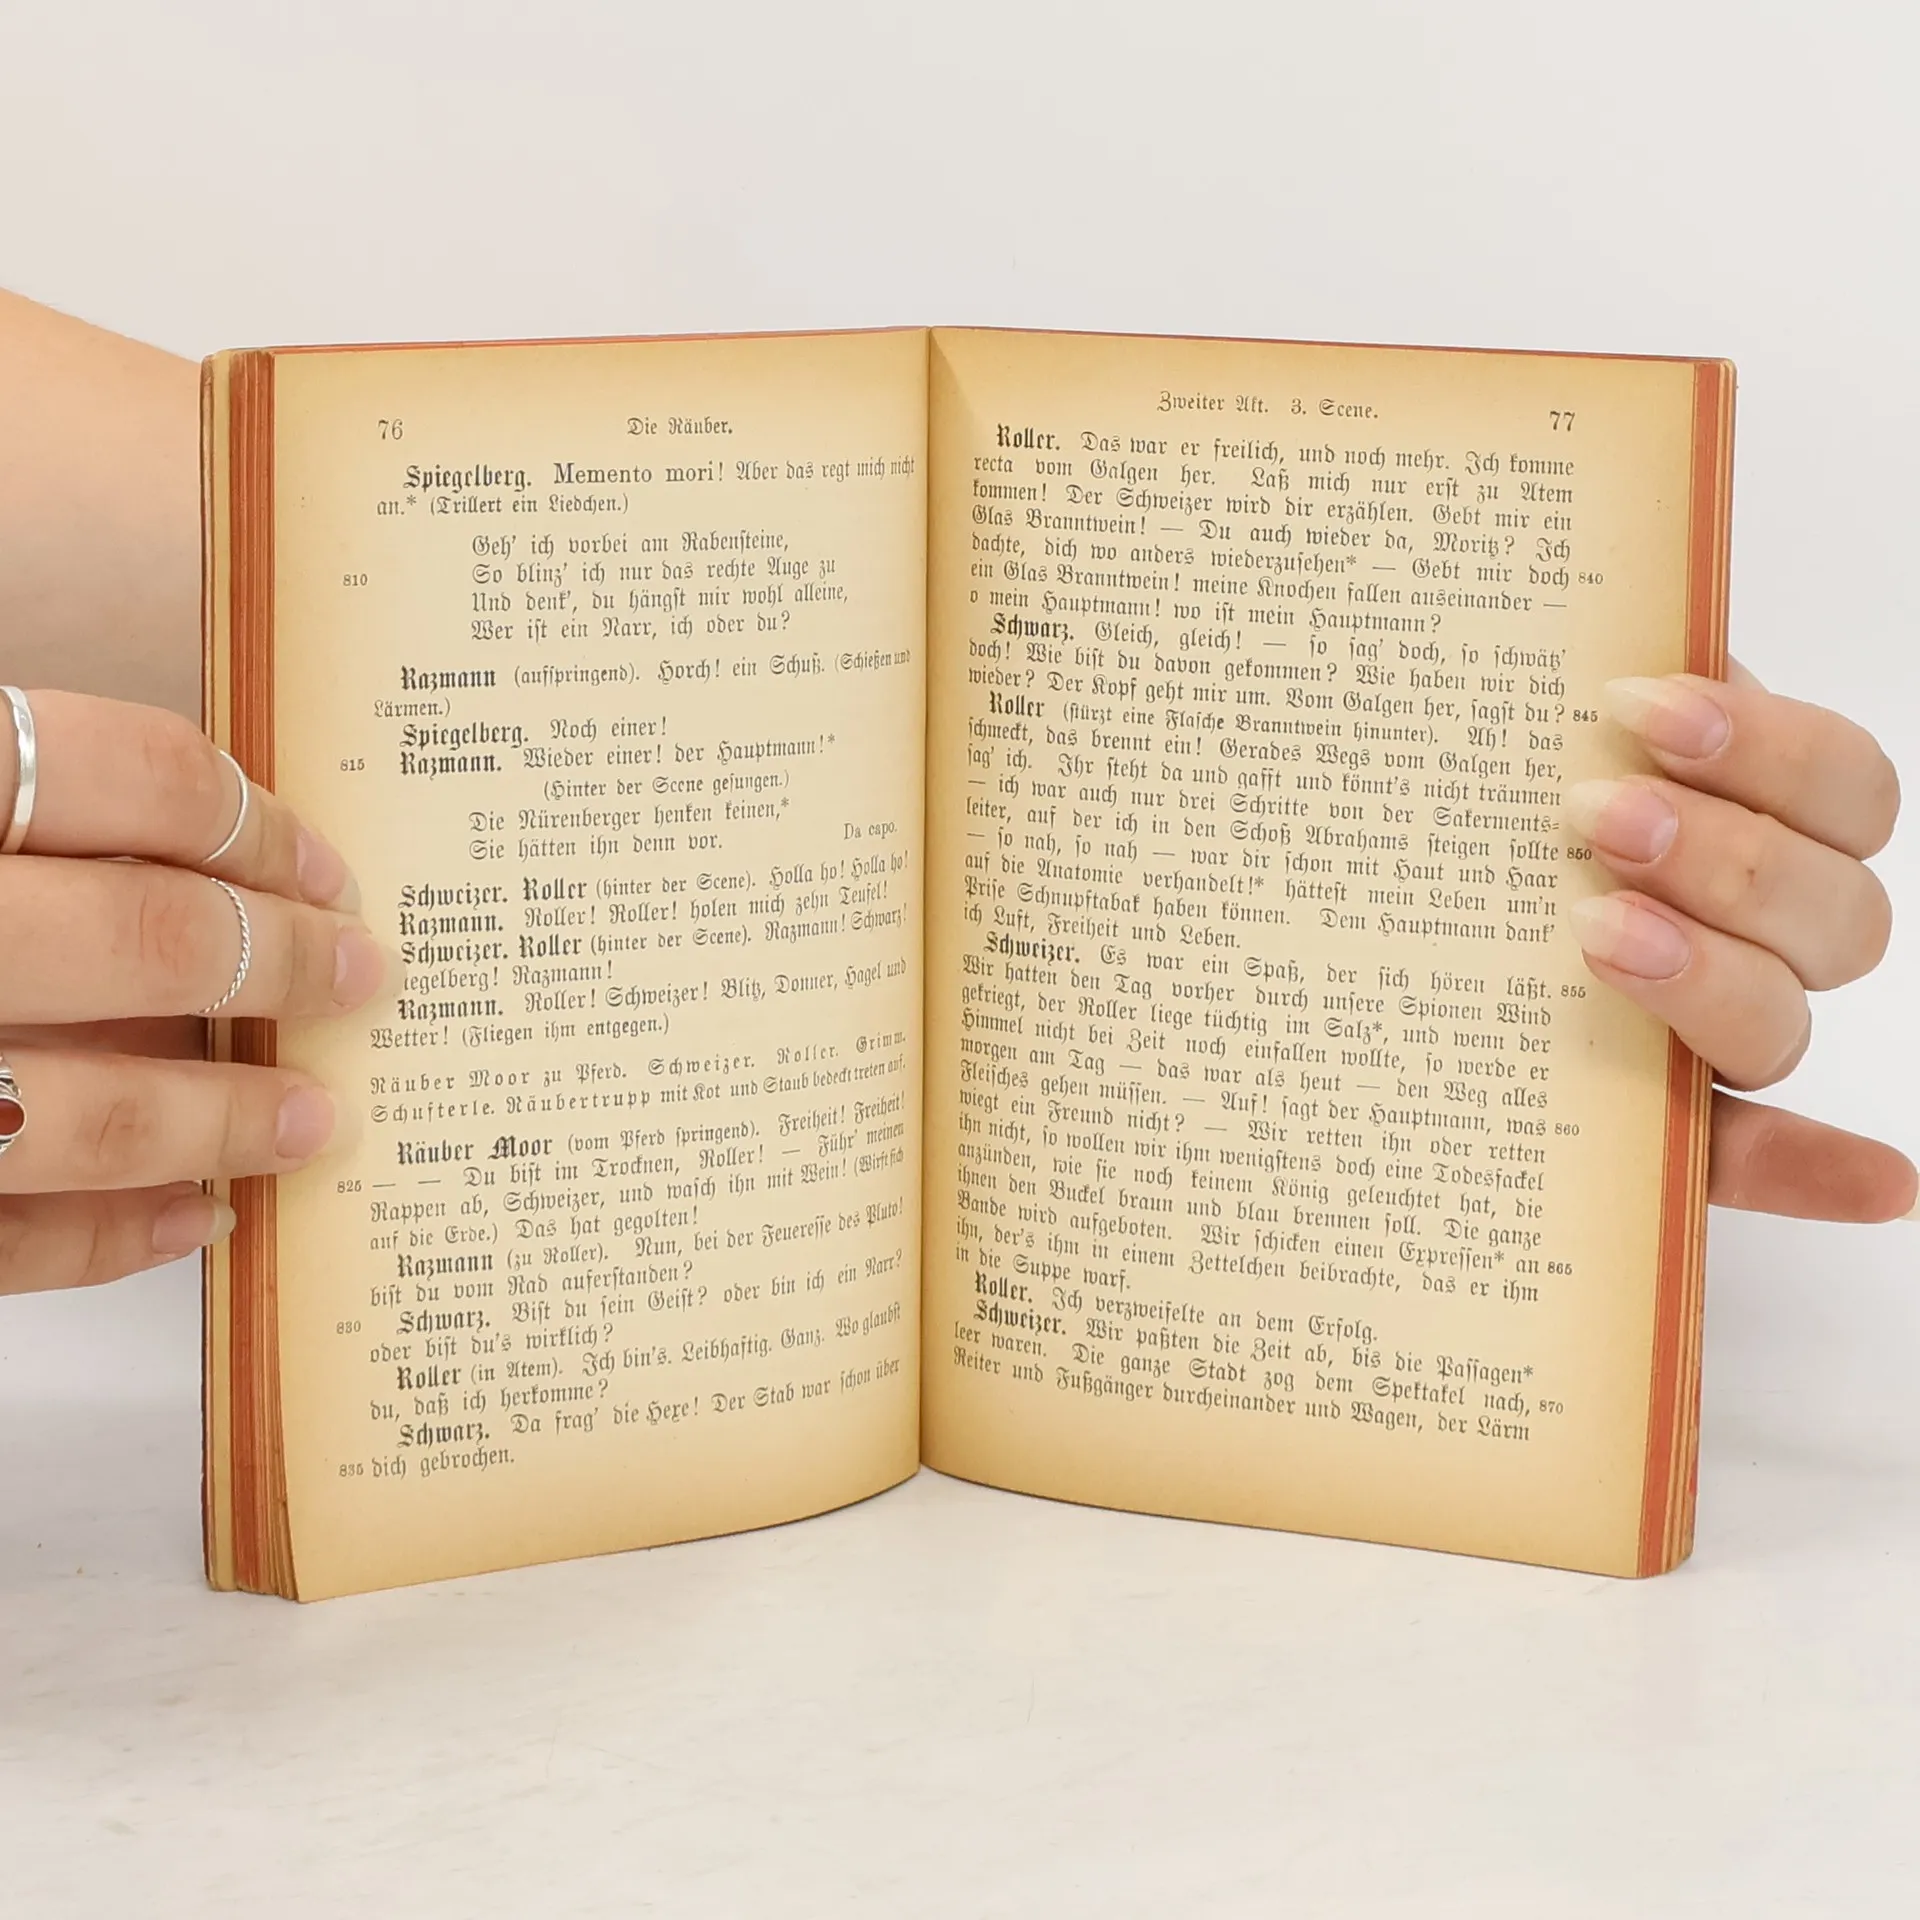 76 Die Räuber.
Spiegelberg. Memento mori! Aber das regt mich nicht
an.* (Trillert ein Liedchen.)
Geh' ich vorbei am Rabensteine,
810 So blinz' ich nur das rechte Auge zu
Und denk', du hängst mir wohl alleine,
Wer ist ein Narr, ich oder du?
Razmann (aufspringend). Horch! ein Schuß. (Schießen und
Lärmen.)
Spiegelberg. Noch einer!
815 Razmann. Wieder einer! der Hauptmann!*
(Hinter der Scene gesungen.)
Die Nürenberger henken keinen,*
Sie hätten ihn denn vor. Da capo.
Schweizer. Roller (hinter der Scene). Holla ho! Holla ho!
Razmann. Roller! Roller! holen mich zehn Teufel!
Schweizer. Roller (hinter der Scene). Razmann! Schwarz!
iegelberg! Razmann!
Razmann. Roller! Schweizer! Blitz, Donner, Hagel und
Wetter! (Fliegen ihm entgegen.)
Räuber Moor zu Pferd. Schweizer. Roller. Grimm.
Schufterle. Räubertrupp mit Kot und Staub bedeckt treten auf.
Räuber Moor (vom Pferd springend). Freiheit! Freiheit!
825 — — Du bist im Trocknen, Roller! — Führ' meinen
Rappen ab, Schweizer, und wasch ihn mit Wein! (Wirft sich
auf die Erde.) Das hat gegolten!
Razmann (zu Roller). Nun, bei der Feueresse des Pluto!
bist du vom Rad auferstanden?
830 Schwarz. Bist du sein Geist? oder bin ich ein Narr?
oder bist du's wirklich?
Roller (in Atem). Ich bin's. Leibhaftig. Ganz. Wo glaubst
du, daß ich herkomme?
Schwarz. Da frag' die Hexe! Der Stab war schon über
835 dich gebrochen.
Zweiter Akt. 3. Scene. 77
Roller. Das war er freilich, und noch mehr. Ich komme
recta vom Galgen her. Laß mich nur erst zu Atem
kommen! Der Schweizer wird dir erzählen. Gebt mir ein
Glas Branntwein! — Du auch wieder da, Moritz? Ich
dachte, dich wo anders wiederzusehen* — Gebt mir doch 840
ein Glas Branntwein! meine Knochen fallen auseinander —
o mein Hauptmann! wo ist mein Hauptmann?
Schwarz. Gleich, gleich! — so sag' doch, so schwätz'
doch! Wie bist du davon gekommen? Wie haben wir dich
wieder? Der Kopf geht mir um. Vom Galgen her, sagst du? 845
Roller (stürzt eine Flasche Branntwein hinunter). Ah! das
schmeckt, das brennt ein! Gerades Wegs vom Galgen her,
sag' ich. Ihr steht da und gafft und könnt's nicht träumen
— ich war auch nur drei Schritte von der Sakerments-
leiter, auf der ich in den Schoß Abrahams steigen sollte 850
— so nah, so nah — war dir schon mit Haut und Haar
auf die Anatomie verhandelt!* hättest mein Leben um'n
Prise Schnupftabak haben können. Dem Hauptmann dank'
ich Luft, Freiheit und Leben.
Schweizer. Es war ein Spaß, der sich hören läßt. 855
Wir hatten den Tag vorher durch unsere Spionen Wind
gekriegt, der Roller liege tüchtig im Salz*, und wenn der
Himmel nicht bei Zeit noch einfallen wollte, so werde er
morgen am Tag — das war als heut — den Weg alles
Fleisches gehen müssen. — Auf! sagt der Hauptmann, was 860
wiegt ein Freund nicht? — Wir retten ihn oder retten
ihn nicht, so wollen wir ihm wenigstens doch eine Todesfackel
anzünden, wie sie noch keinem König geleuchtet hat, die
ihnen den Buckel braun und blau brennen soll. Die ganze
Bande wird aufgeboten. Wir schicken einen Expressen* an 865
ihn, der's ihm in einem Zettelchen beibrachte, das er ihm
in die Suppe warf.
Roller. Ich verzweifelte an dem Erfolg.
Schweizer. Wir paßten die Zeit ab, bis die Passagen*
leer waren. Die ganze Stadt zog dem Spektakel nach, 870
Reiter und Fußgänger durcheinander und Wagen, der Lärm